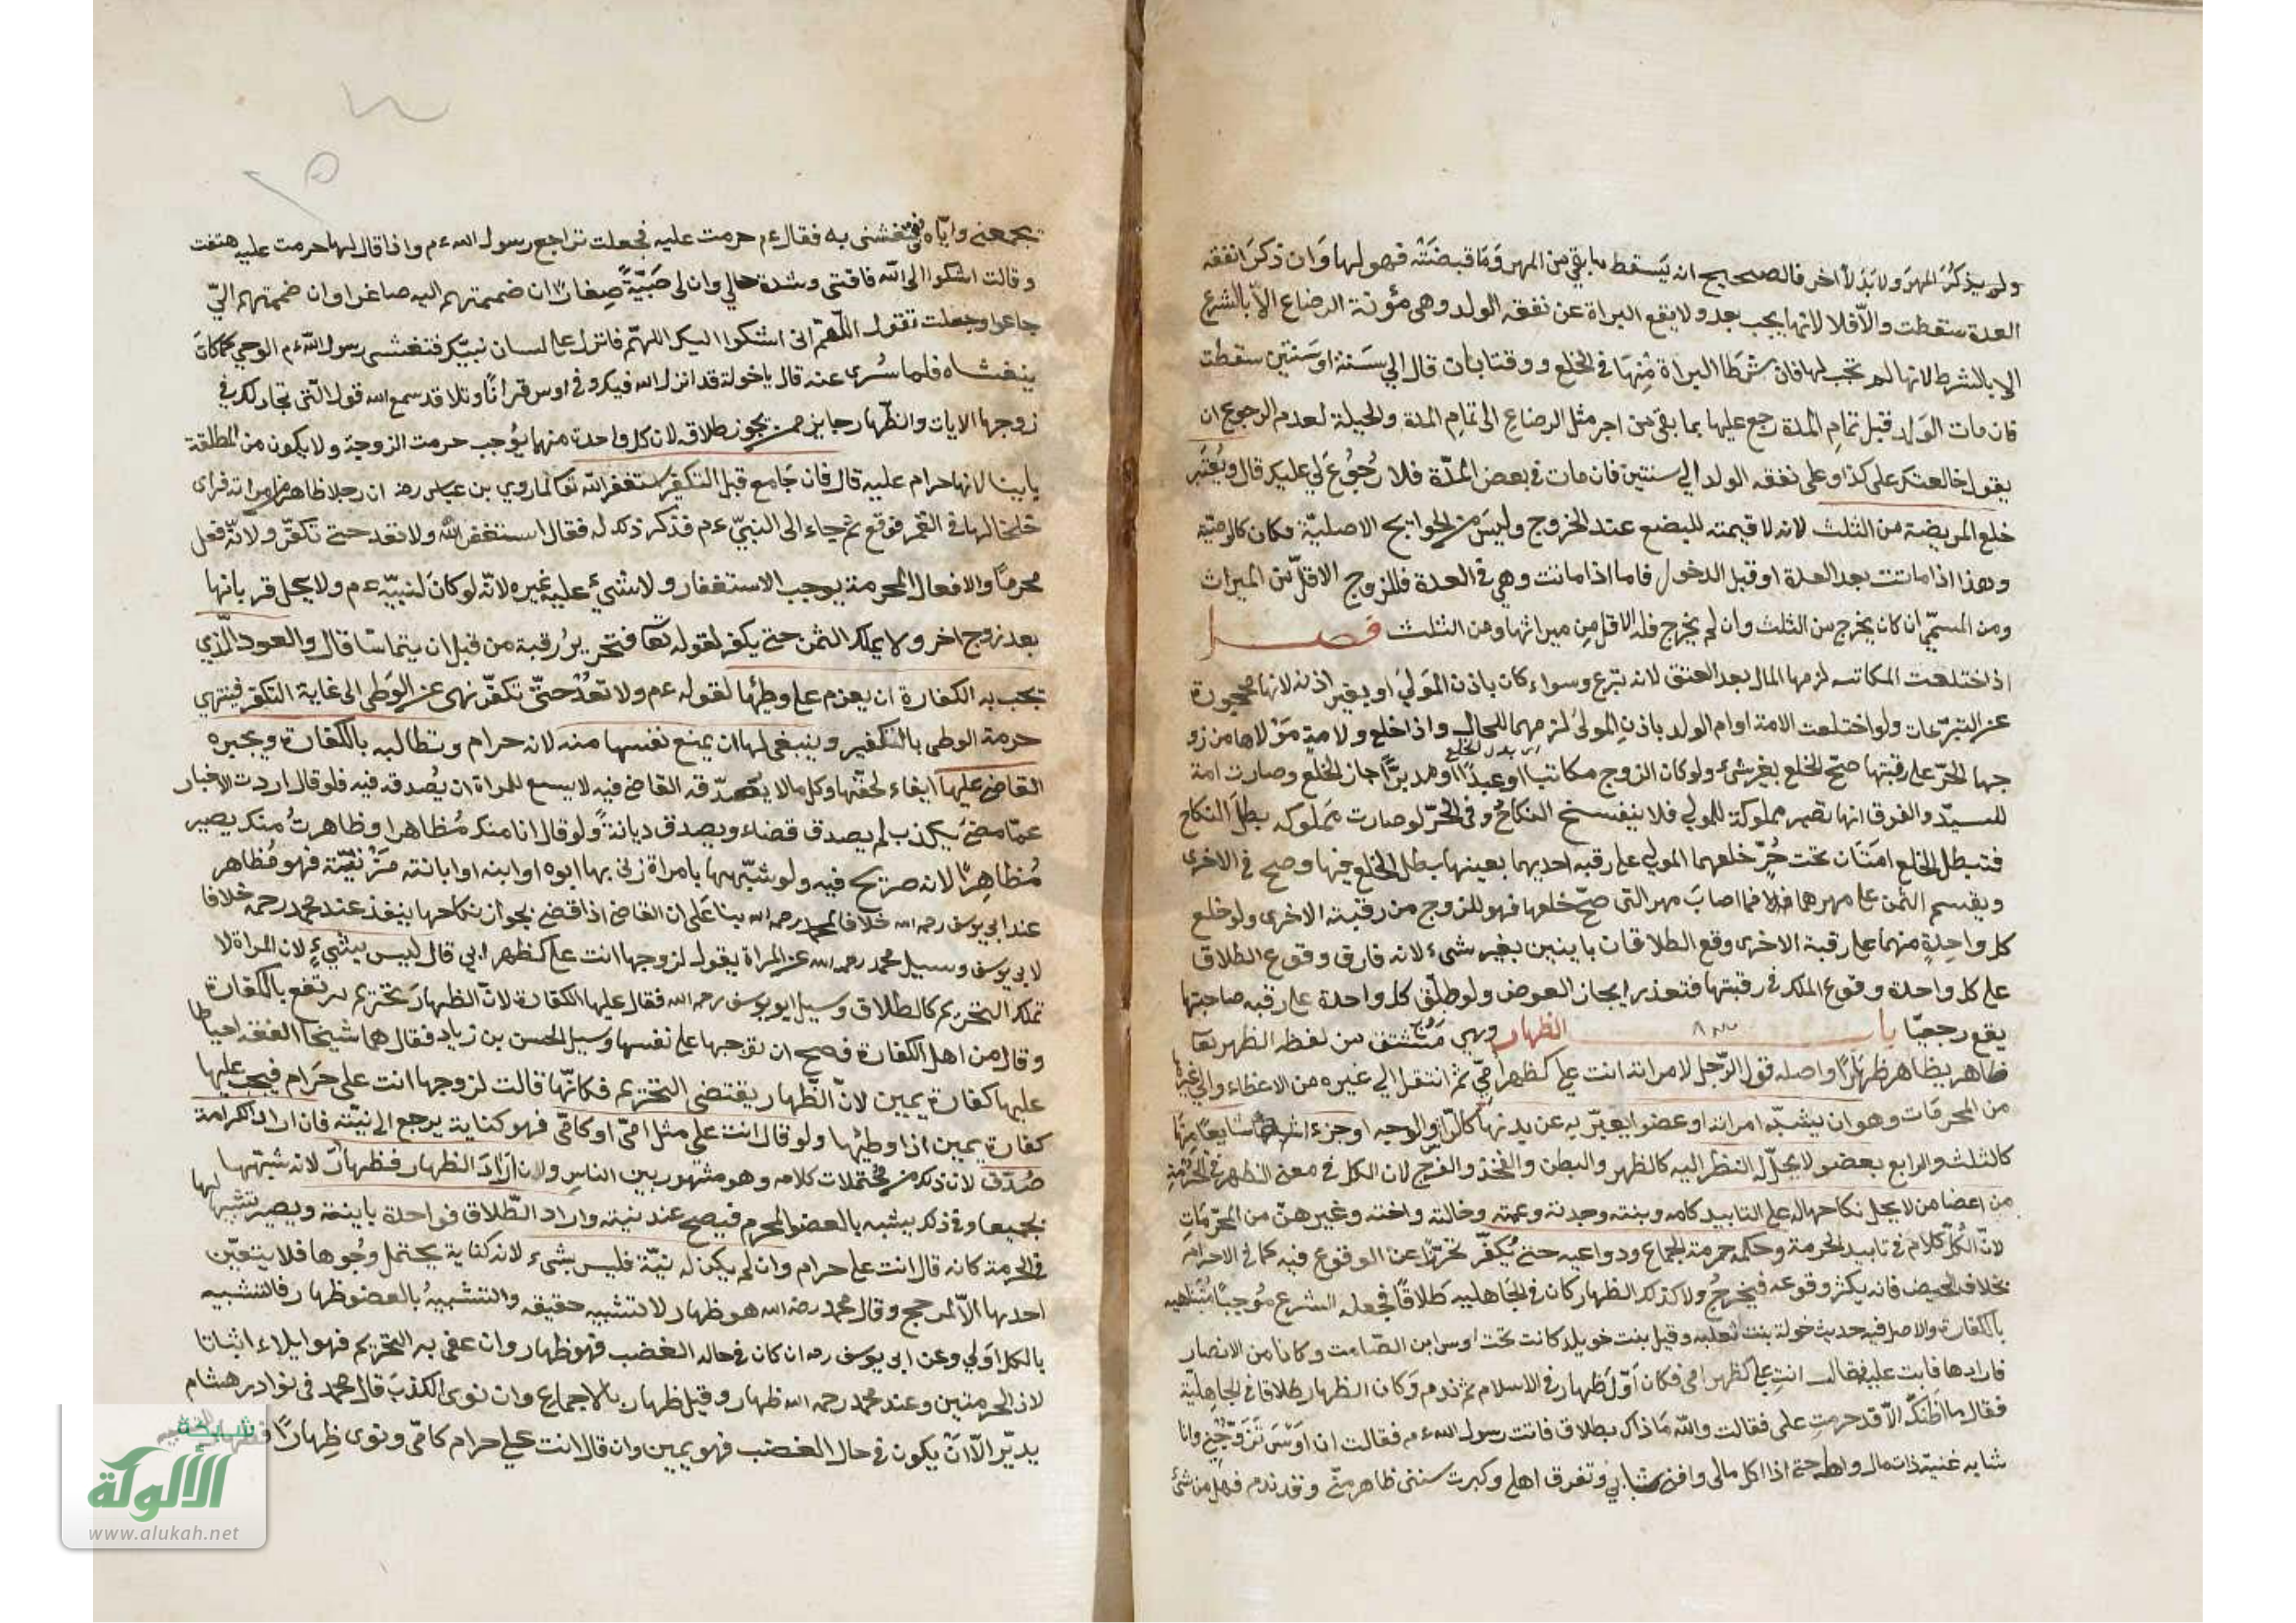 ولم يذكر المهر ولا بدلا آخر فالصحيح انه يسقط ما بقي من المهر وما قبضته فهو لها وان ذكرا نفقه
العدة سقطت والّا فلا لانها يجب بعد ولا يقع البراة عن نفقه الولد وهي مؤنة الرضاع الا بالشرع
الا بالشرط لانها لم تجب لها فان شرطا البراة منها في الخلع ووقتا بان قال الي سنة او سنتين سقطت
فان مات الولد قبل تمام المدة رجع عليها بما بقى من اجر مثل الرضاع الى تمام المدة والحيلة لعدم الرجوع ان
يقول خالعتك على كذا وعلى نفقه الولد الي سنتين فان مات في بعض المدّة فلا رجوع لي عليك قال ويعتبر
خلع المريضة من الثلث لانه لا قيمته للبضع عند الخروج وليس من الحوايج الاصليّة فكان كالوصيّة
وهذا اذا ماتت بعد العدة او قبل الدخول فاما اذا ماتت وهي في العدة فللزوج الاقلّ من الميراث
ومن المسمّي ان كان يخرج من الثلث وان لم يخرج فله الاقل من ميراثها ومن الثلث فصل
اذا اختلعت المكاتبه لزمها المال بعد العتق لانه تبرع وسواء كان باذن المولي او بغير اذنه لانها محجورة
عن التبرّعات ولو اختلعت الامة او ام الولد باذن المولي لزمهما للحال واذا خلع ولا مة مولاها من زو
جها الحرّ على رقبتها صحّ الخلع بغير شيء ولو كان الزوج مكاتبا او عبدًا او مدبرًا جاز الخلع وصارت امة
للسيّد والفرق انها تصير مملوكة للمولي فلا ينفسخ النكاح وفي الحرّ لو صارت مملوكه بطل النكاح
فتبطل الخلع امتان تحت حُرّ خلعهما المولي على رقبه احديهما بعينها بطل الخلع فيها وصح في الاخرى
ويقسم الثمن على مهرهما فما اصاب مهر التى صحّ خلعها فهو للزوج من رقبته الاخرى ولو خلع
كل واحدة منهما على رقبة الاخرى وقع الطلاقان باينين بغير شيء لانه قارن وقوع الطلاق
على كل واحدة وقوع الملك في رقبتها فتعذر ايجاز العوض ولو طلّق كل واحدة على رقبه صاحبتها
يقع رجعيّا باب الظهار وهي مشتق من لفظه الظهر يقا
ظاهر يظاهر ظهارًا واصله قول الرّجل لامراته انت علي كظهر امّي ثم انتقل الي غيره من الاعضاء والى غيره
من المحرمات وهو ان يشبّه امراته او عضوا يعبّر به عن بدنها كالرّاس والوجه او جزءا شايعًا منها
كالثلث والرابع بعضو لا يحلّ له النظر اليه كالظهر والبطن والفخذ والفرج لان الكل في معنى الظهر في الحرمة
من اعضا من لا يحل نكاحها له على التابيد كامه وبنته وجدته وعمته وخالته واخته وغيرهنّ من المحرّمات
لانّ الكلّ كلام في تابيد الحرمة وحكمه حرمة الجماع ودواعيه حتى يكفّر تحرّزا عن الوقوع فيه كما في الاحرام
بخلاف الحيض فانه يكثر وقوعه فيحرج ولا كذلك الظهار كان في الجاهليه طلاقًا فجعله الشرع موجبًا متناهيه
بالكفارة والاصل فيه حديث خولة بنت ثعلبه وقيل بنت خويلد كانت تحت اوس ابن الصّامت وكانا من الانصار
فارادها فابت عليه فقال انتِ علي كظهر امي فكان اوّل ظهار في الاسلام ثم ندم وكان الظهار طلاقا في الجاهليّة
فقال ما اظنك الّا قد حرمت على فقالت والله ما ذاك بطلاق فاتت رسول الله ءم فقالت ان اوسَ تزوّجني وانا
شابه غنيّة ذات مال واهل حتى اذا اكل مالى وافنى شبابي وتفرق اهلي وكبرت سنى ظاهر منّي وقد ندم فهل من شئ
يجمعني وايّاه فتغشنى به فقال ءم حرمت عليه فجعلت تراجع رسول الله ءم واذا قال لها حرمت عليه هتفت
وقالت اشكوا الى اللّه فاقتى وشدة حالي وان لى صَبيّةً صِغارًا ان ضممتهم اليه ضاعوا وان ضممتهم اليّ
جاعوا وجعلت تقول اللّهمّ انى اشكوا اليك اللهمّ فانزل على لسان نبيّك فتغشى رسول اللّه ءم الوحي كما كان
يتغشاه فلما سُرى عنه قال يا خولة قد انزل الله فيك وفي اوس قرانًا وتلا قد سمع الله قول الّتى تجادلك في
زوجها الايات والظّهار جايز ممن يجوز طلاقه لان كل واحدة منهما يوجب حرمت الزوجة ولا يكون من المطلقة
باينا لانها حرام عليه قال فان جَامع قبل التكفير استغفر اللّه تعا لما روي بن عباس رضه ان رجلا ظاهر من امراته فراى
خلخالها في القمر فوقع ثم جاء الى النبيّ ءم فذكر ذلك له فقال استغفر اللّه ولا تعد حتى تكفّر ولانّه فعل
محرمًا والافعال المحرمة يوجب الاستغفار ولا شيء عليه غيره لانّه لو كان لنبيّه ءم ولا يحل قربانها
بعد زوج اخر ولا يملك الثمن حتى يكفر لقوله تعا فتحريرُ رقبة من قبل ان يتماسّا قال والعود الّذي
تجب به الكفارة ان يعزم على وطيها لقوله ءم ولا تعُدْ حتىّ تكفّر نهى عن الوَطى الى غاية التكفير فينتهي
حرمة الوطى بالتكفير وينبغى لها ان يمنع نفسها منه لانه حرام وتطالبه بالكفارة ويجبره
القاضي عليها ايفاء لحقّها وكل ما لا يصدّقه القاضي فيه لا يسع للمراة ان يُصدقه فيه فلو قال اردت الاخبار
عمّا مضى بكذب لم يصدق قضاء ويصدق ديانةً ولو قال انا منك مُظاهرا وظاهرتُ منك يصير
مُظاهرًا لانه صريح فيه ولو شبّهها بامراة زنى بها ابوه او ابنه فهو مُظاهر
عند ابي يوسف رحمه الله خلافا لمحمد رحمه الله بنا على ان القاضي اذا قضى بجواز نكاحها ينفذ عند محمد رحمه خلافا
لابي يوسف وسيل محمد رحمه الله عن المراة يقول لزوجها انت علي كظهر ابي قال ليس بشيءٍ لان المراة لا
تملك التحريم كالطلاق وسيل ابو يوسف رحمه الله فقال عليها الكفارة لانّ الظهار تحريم يرتفع بالكفارة
وقال من اهل الكفارة فصح ان توجبها على نفسها وسيل الحسن بن زياد فقال هما شيخا الفقه اخطا
عليها كفارة يمين لانّ الظّهار يقتضى التحريم فكانّها قالت لزوجها انت على حَرام فيجب عليها
كفارة يمين اذا وطيها ولو قال انت علي مثل امّى او كامّى فهو كناية يرجع الى نيّته فان اراد الكرامة
صُدّق لان ذلك من محتملات كلامه وهو مشهور بين الناس ولان ارَادَ الظهار فظهارٌ لانه شبّهها
بجميعها وفي ذلك يشبه بالعضو المحرم فيصح عند نيته واراد الطّلاق فواحدة باينة ويصير تشبيها لها
في الحرمة كانه قال انت علي حرام وان لم يكن له نيّة فليس بشىء لانه كناية يحتمل وجوها فلا يتعيّن
احديها الّا لمرجح وقال محمد رضه الله هو ظهار لانه تشبيه حقيقه والتشبيهُ بالعضو ظهار فالتشبيه
بالكل اولي وعن ابى يوسف رمه ان كان في حاله الغضب فهو ظهار وان عنى به التحريم فهو ايلاء اثباتا
لادنى الحرمتين وعند محمد رحمه الله ظهار وقيل ظهار بالاجماع وان نوى الكذبَ قال محمد فى نوادر هشام
يديّن الّا انْ يكون في حال الغضب فهو يمين وان قال انت علي حرام كامّى ونوى ظِهارًا
شبكة
الألوكة
www.alukah.net